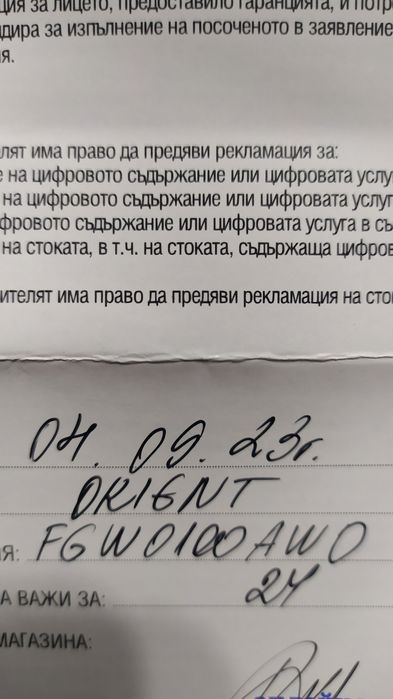 ция за лицето, предоставило гаранцията, и потр
дира за изпълнение на посоченото в заявление
я.
лят има право да предяви рекламация за:
е на цифровото съдържание или цифровата услу
на цифровото съдържание или цифровата услуг
фровото съдържание или цифровата услуга в съ
на стоката, в т.ч. на стоката, съдържаща цифров
ителят има право да предяви рекламация на сто
04. 09. 23г.
ORIENT
Я: FGW0100AW0
А ВАЖИ ЗА: 24
МАГАЗИНА: